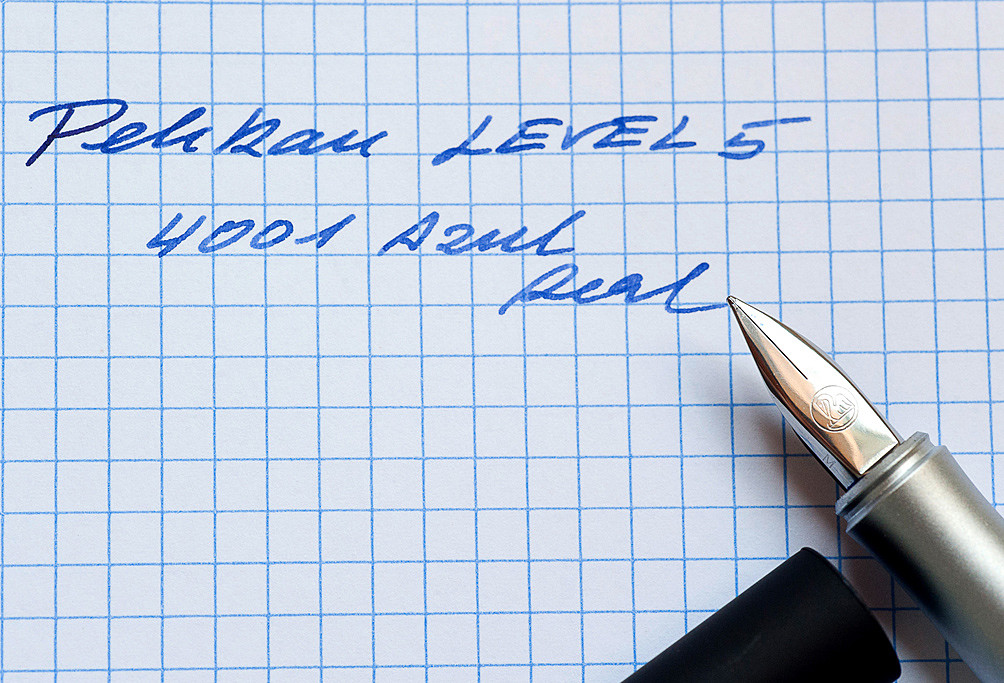 Pelikan LEVEL 5
4001 Azul
Real
M